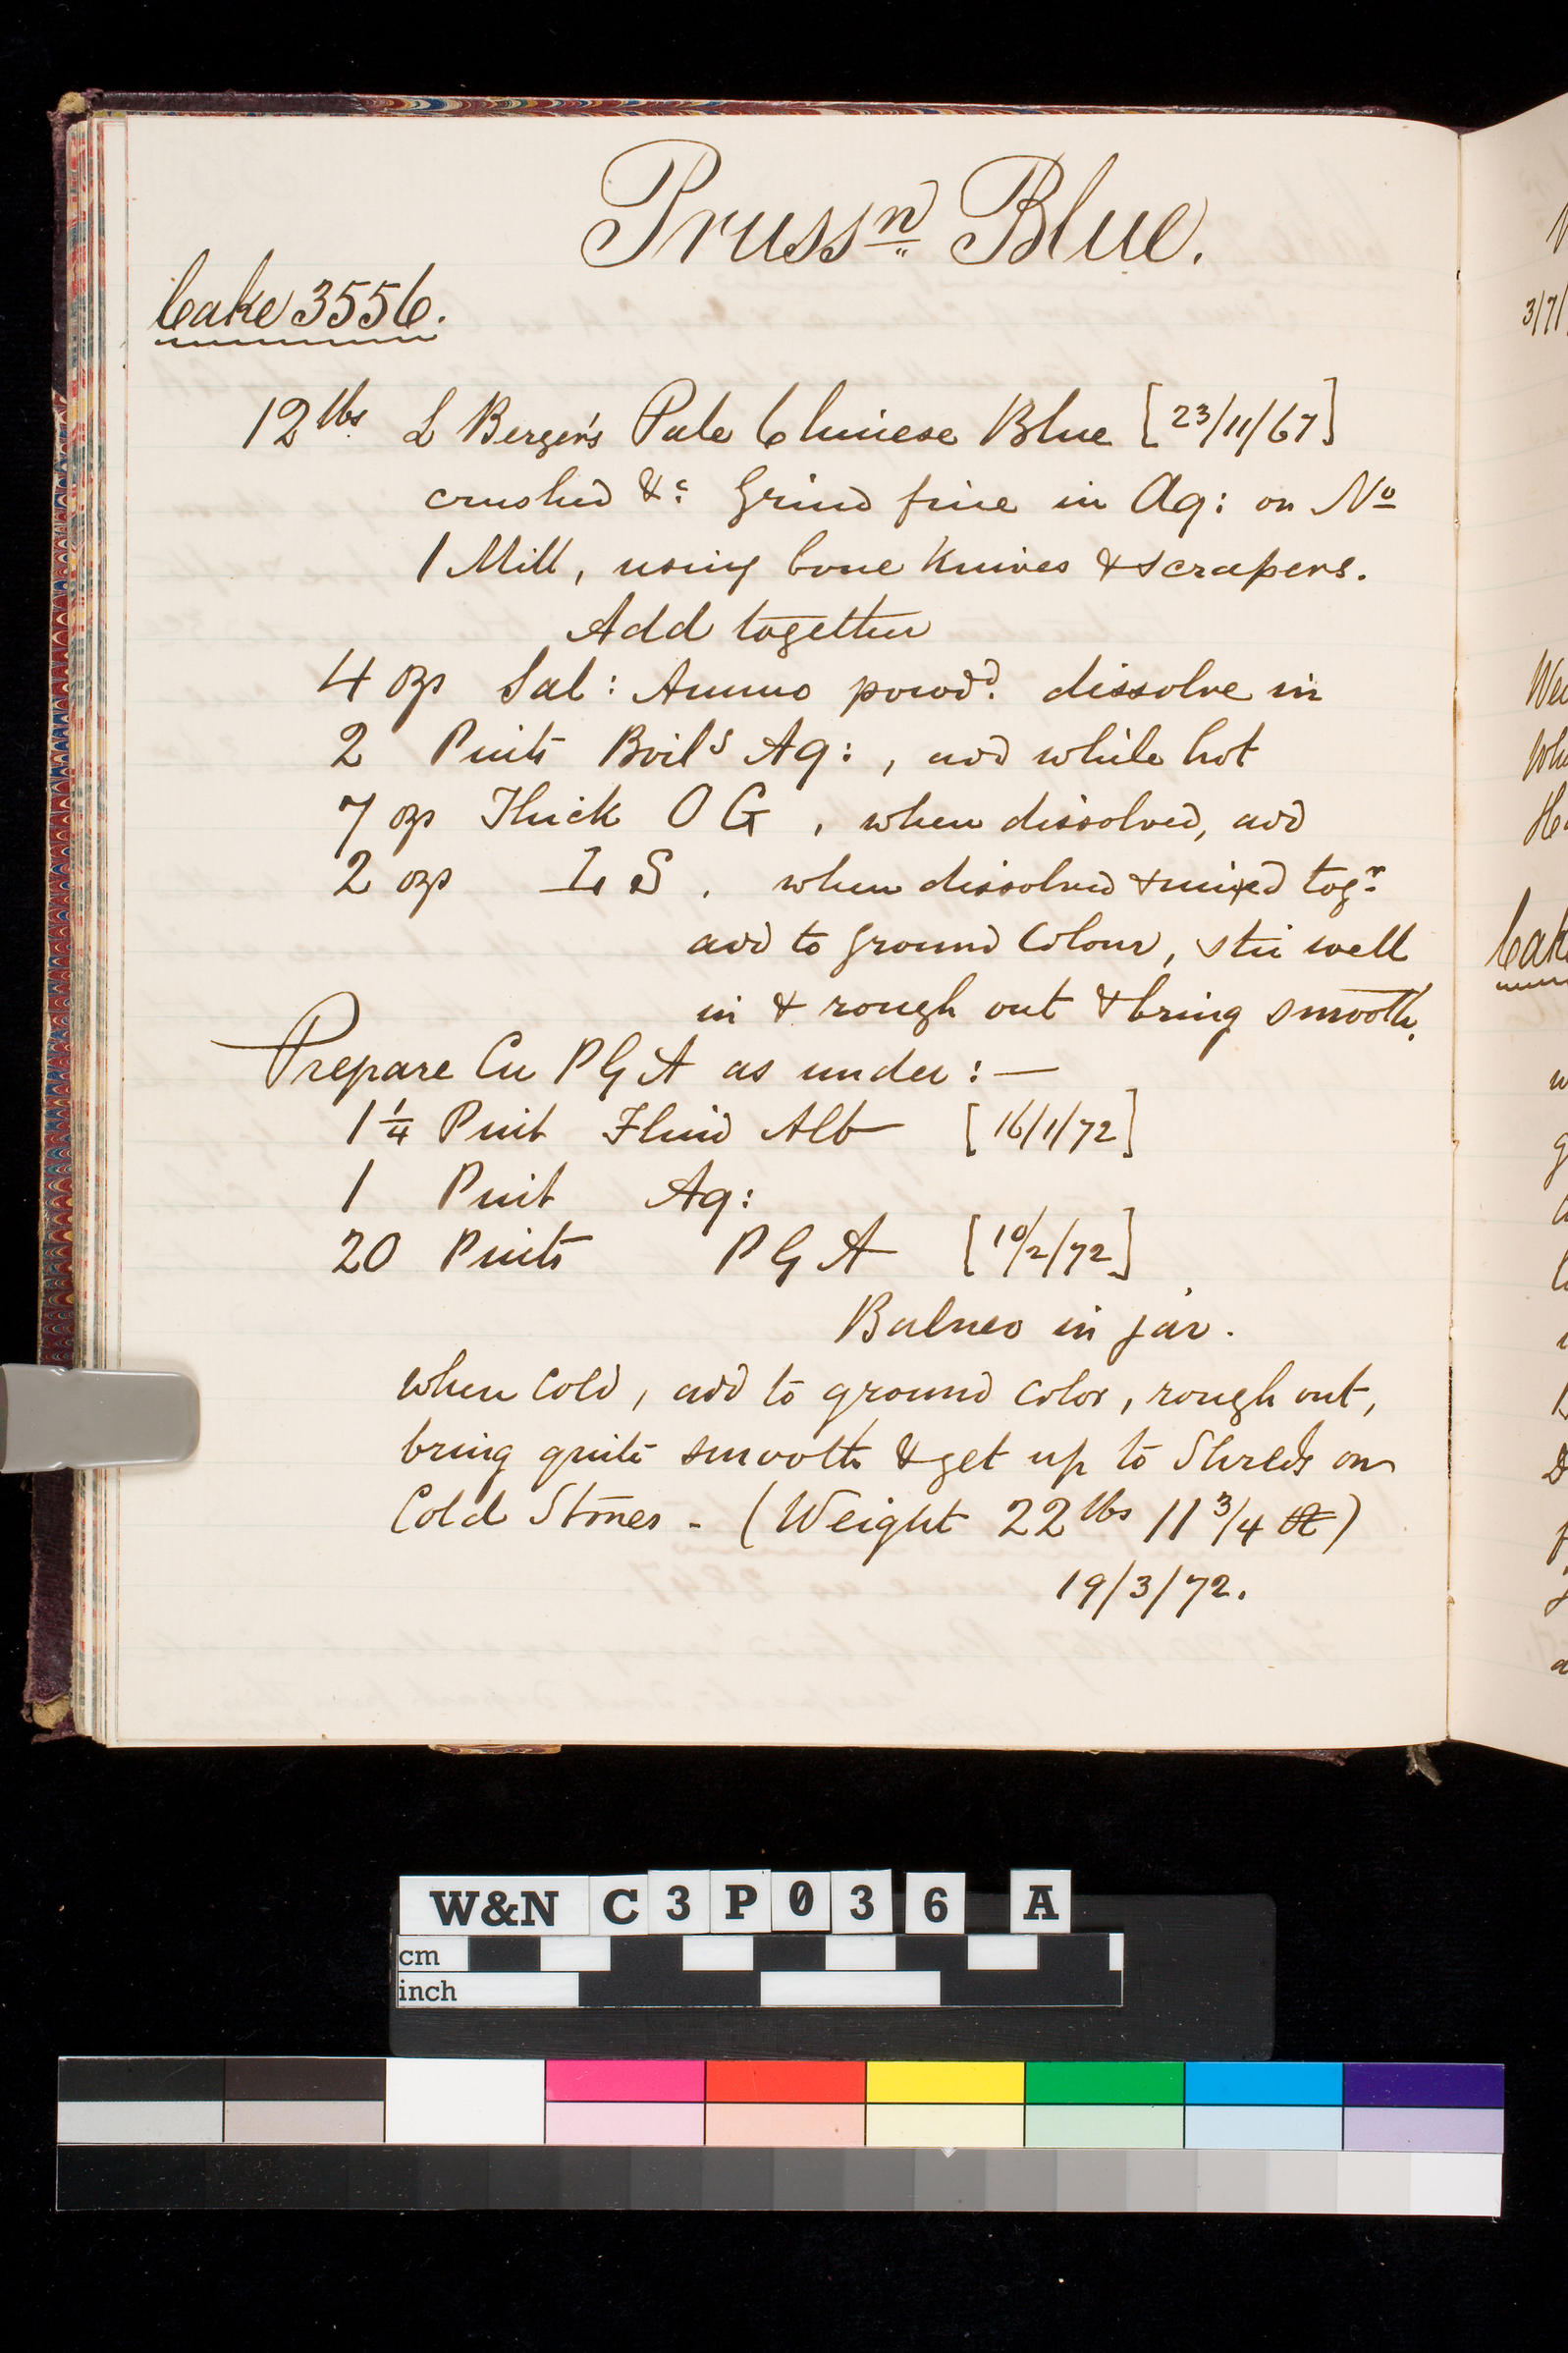 Prussn Blue.
Cake 3556.
12 lbs L Berger's Pale Chinese Blue [23/11/67]
crushed &c Grind fine in Aq: on No
1 Mill, using bone knives & scrapers.
Add together
4 ozs Sal: Ammo powdd. dissolve in
2 Pints Boilg Aq: , add while hot
7 ozs Thick O G , when dissolved, add
2 ozs L S . when dissolved & mixed togr
add to ground Colour, stir well
in & rough out & bring smooth.
Prepare Cu P G A as under :—
1 1/4 Pint Fluid Alb [16/1/72]
1 Pint Aq:
20 Pints P G A [10/2/72]
Balneo in jar.
when cold, add to ground color, rough out,
bring quite smooth & get up to Shreds on
Cold Stones - (Weight 22 lbs 11 3/4)
19/3/72.
W&N C3P036 A
cm
inch
3/7/
Cak